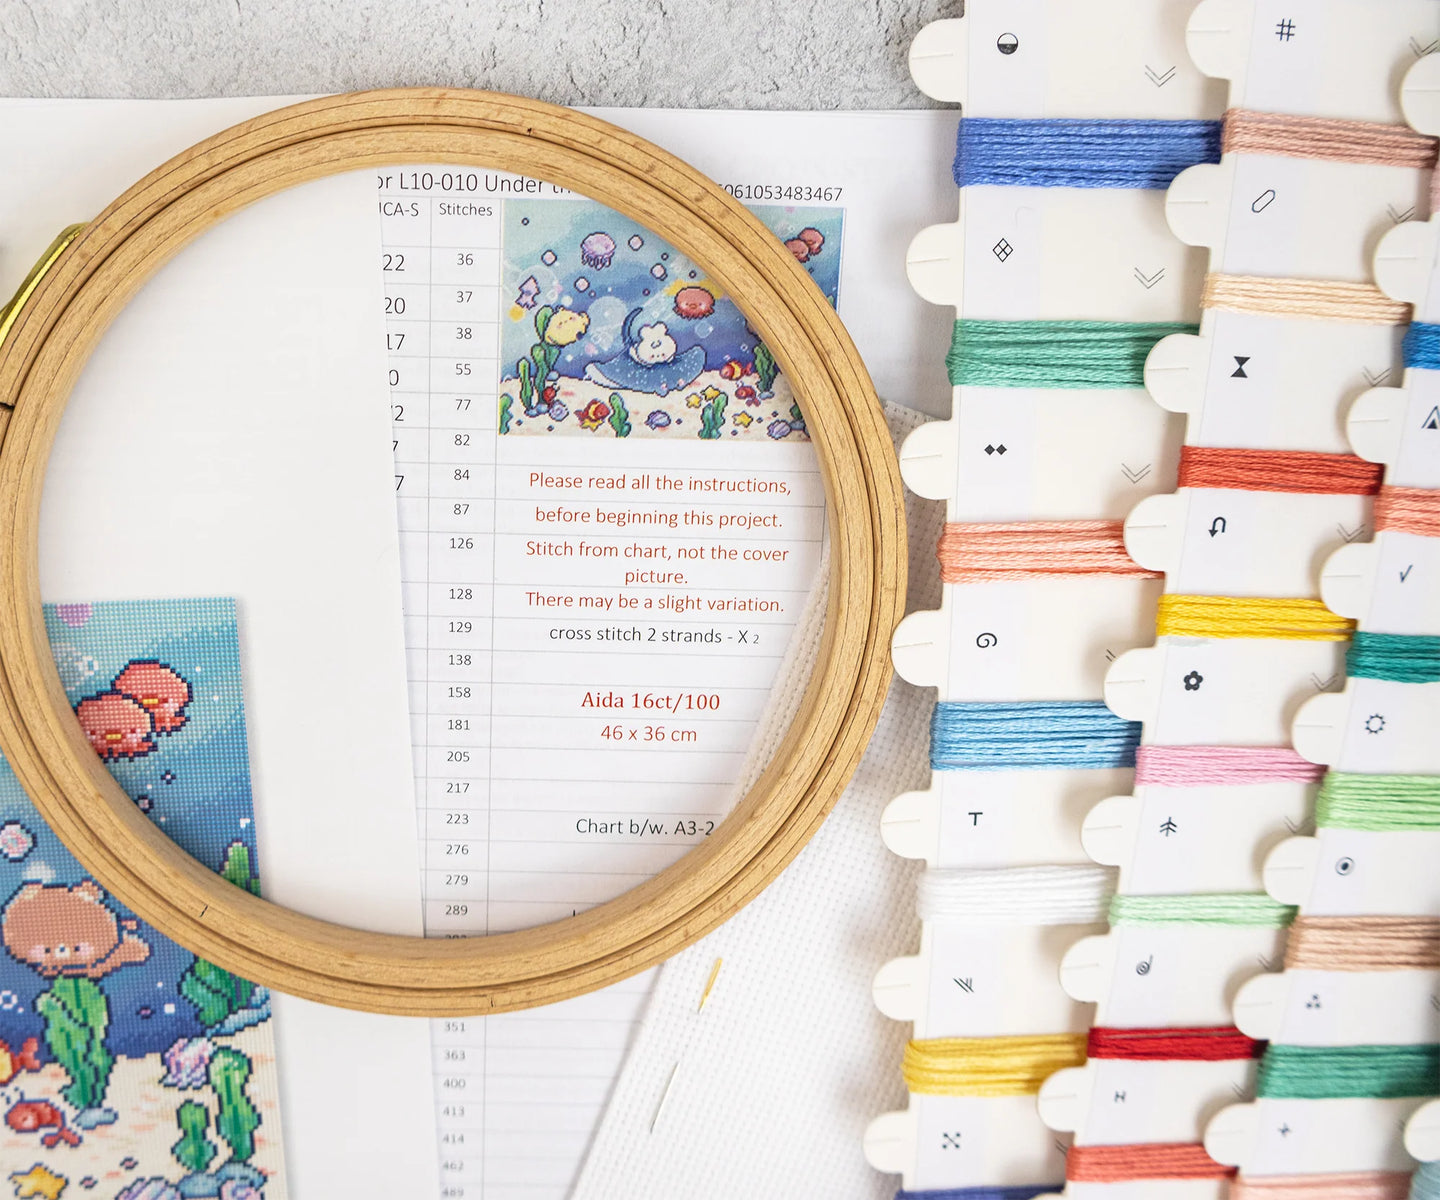 or L10-010 Under
061053483467
UCA-S Stitches
22 36
20 37
17 38
0 55
2 77
7 82
7 84
Please read all the instructions,
87
before beginning this project.
126
Stitch from chart, not the cover
picture.
128
There may be a slight variation.
129
cross stitch 2 strands - X 2
138
158
Aida 16ct/100
181
46 x 36 cm
205
217
223
Chart b/w. A3-2
276
279
289
351
363
400
413
414
462
489
#
T
√
N